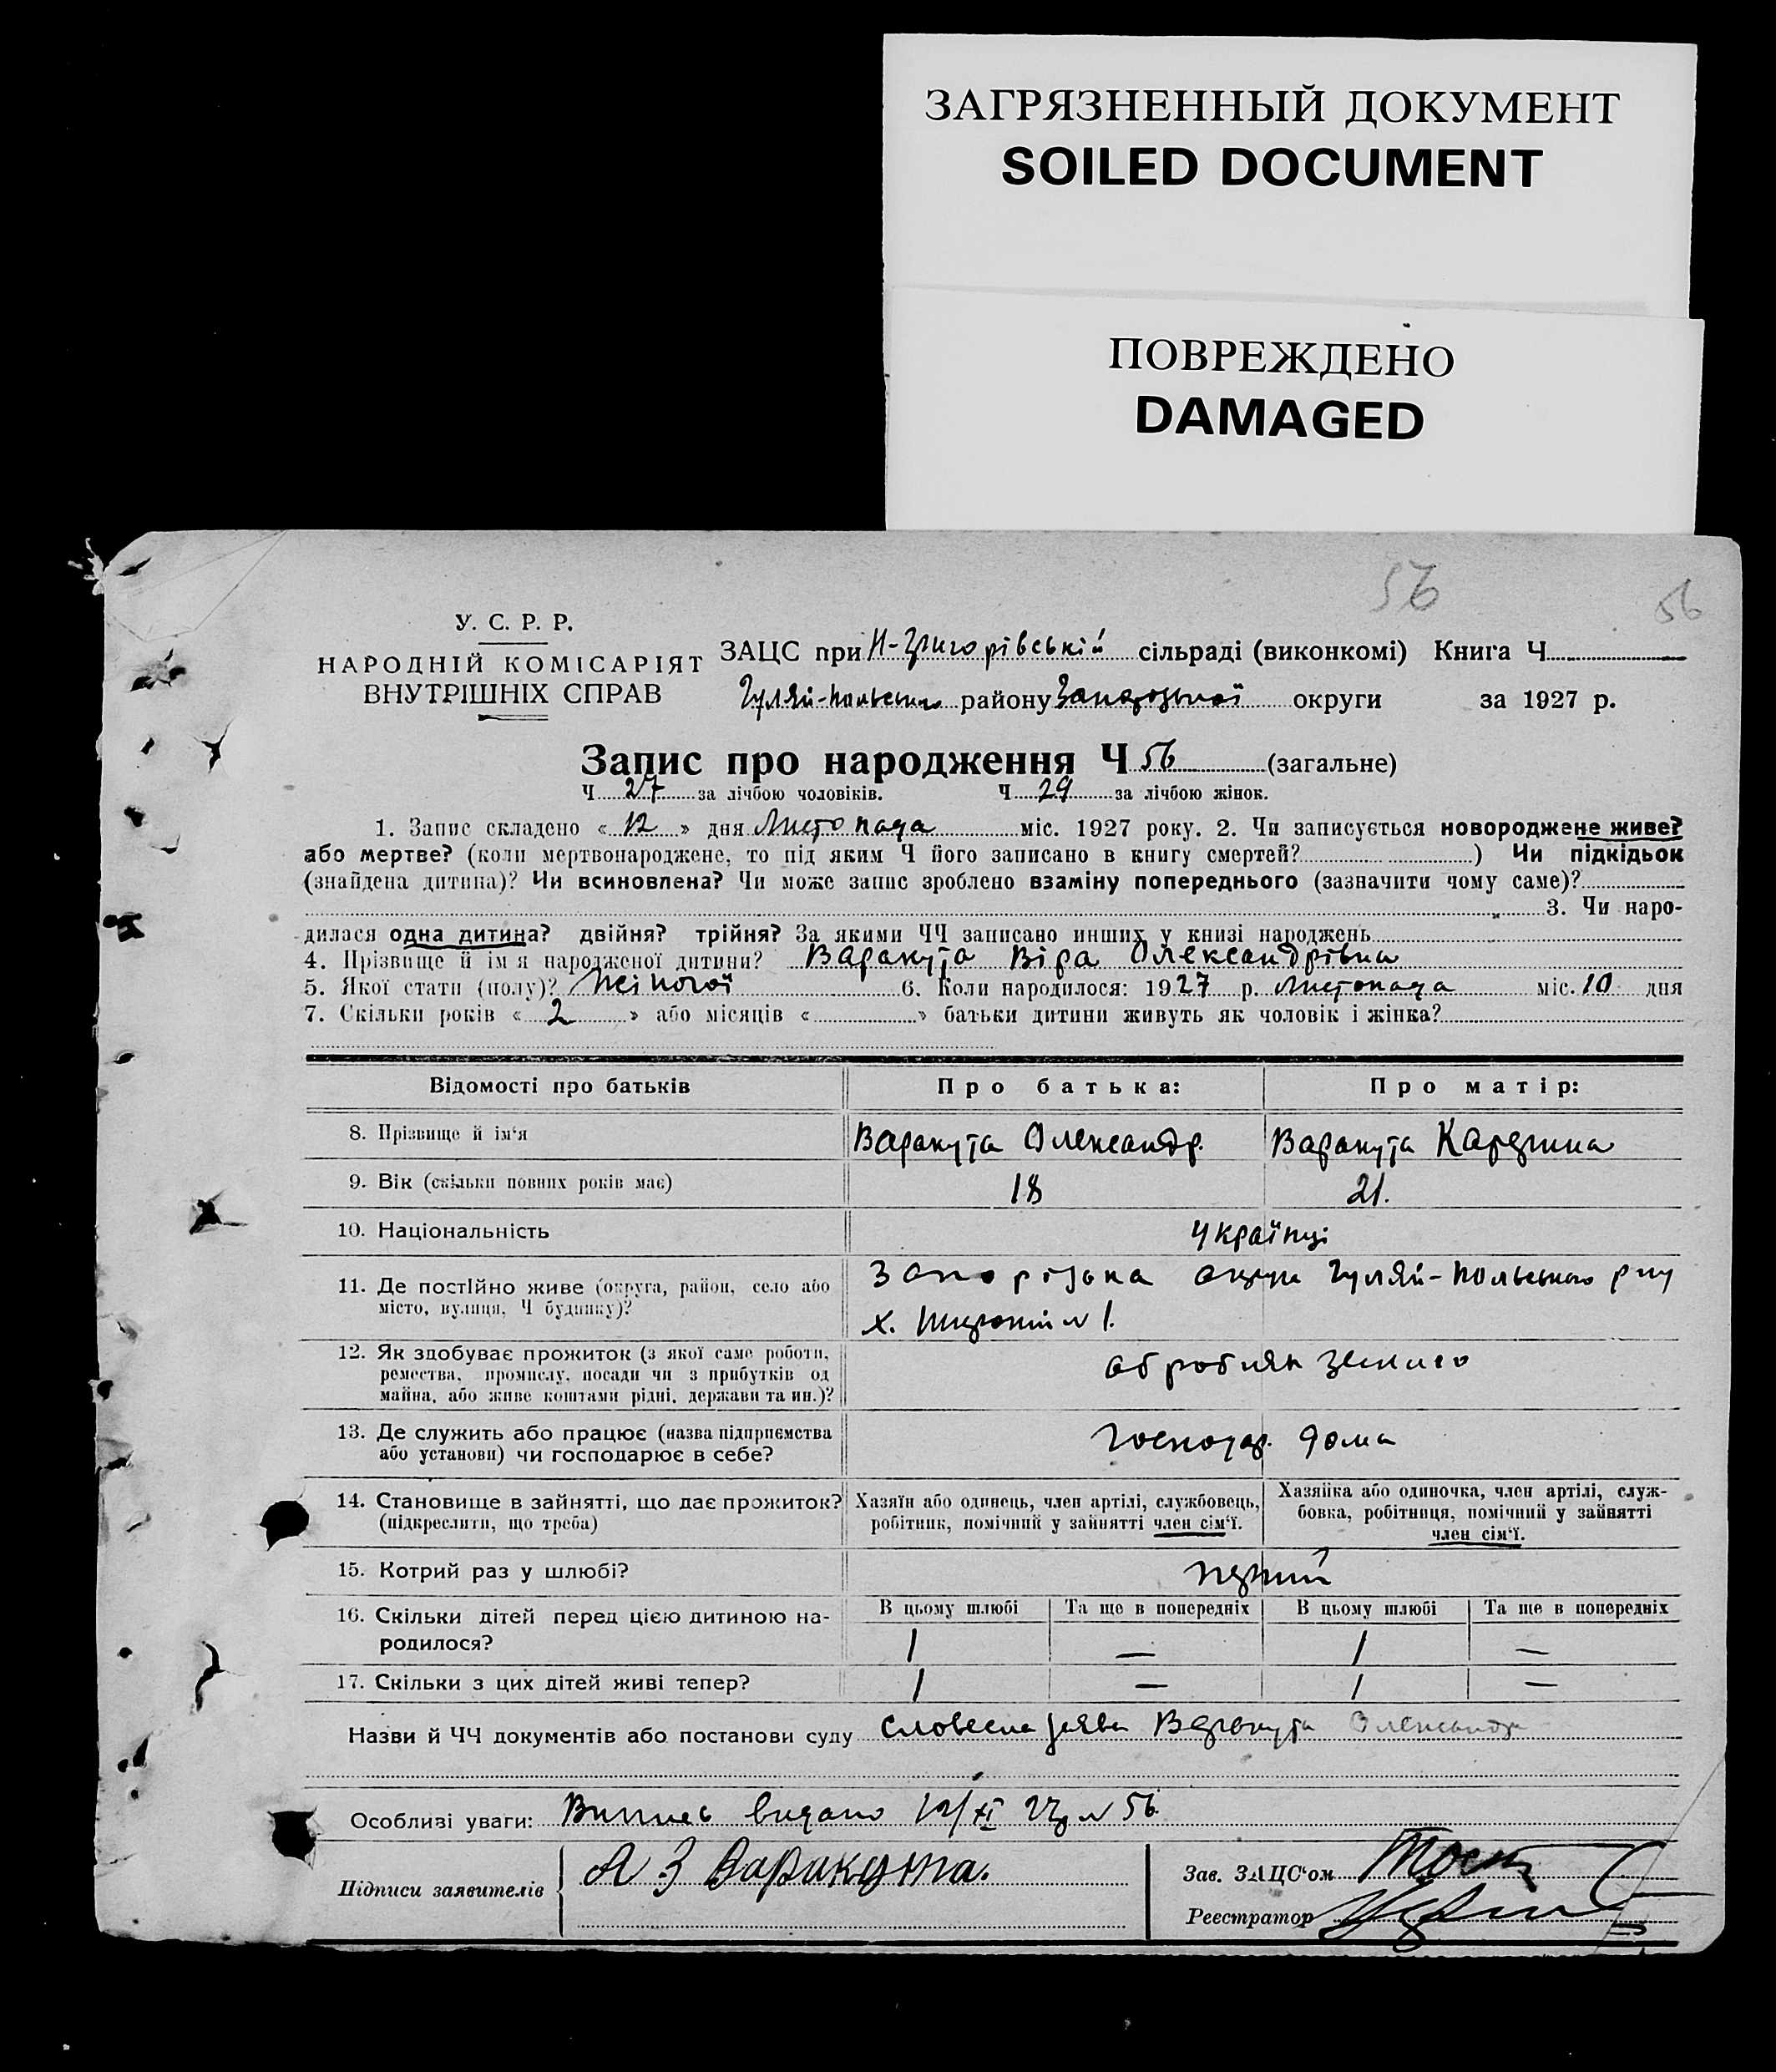 ЗАГРЯЗНЕННЫЙ ДОКУМЕНТ
SOILED DOCUMENT
ПОВРЕЖДЕНО
DAMAGED
56
56
У. С. Р. Р.
НАРОДНІЙ КОМІСАРІЯТ
ВНУТРІШНІХ СПРАВ
ЗАЦС при Н-Григорівській сільраді (виконкомі) Книга Ч
Гуляй-Польського району Запорізької округи за 1927 р.
Запис про народження Ч 56 (загальне)
Ч 27 за лічбою чоловіків. Ч 29 за лічбою жінок.
1. Запис складено « 12 » дня Листопада міс. 1927 року. 2. Чи записується новороджене живе?
або мертве? (коли мертвонароджене, то під яким Ч його записано в книгу смертей? ) Чи підкідьок
(знайдена дитина)? Чи всиновлена? Чи може запис зроблено взаміну попереднього (зазначити чому саме)?
3. Чи наро-
дилася одна дитина? двійня? трійня? За якими ЧЧ записано инших у книзі народжень
4. Прізвище й ім'я народженої дитини? Варакута Віра Олександрівна
5. Якої стати (полу)? Жіночої 6. Коли народилося: 1927 р. Листопада міс. 10 дня
7. Скільки років « 2 » або місяців « » батьки дитини живуть як чоловік і жінка?
Відомості про батьків Про батька: Про матір:
8. Прізвище й ім'я Варакута Олександр. Варакута
9. Вік (скільки повних років має) 18 21.
10. Національність Українці
11. Де постійно живе (округа, район, село або Запорізька округа Гуляй-Польського р-ну
місто, вулиця, Ч будинку)? х. № 1.
12. Як здобуває прожиток (з якої саме роботи,
ремества, промислу, посади чи з прибутків од
майна, або живе коштами рідні, держави та ин.)?
13. Де служить або працює (назва підприємства Господар. дома
або установи) чи господарює в себе?
14. Становище в зайнятті, що дає прожиток? Хазяїн або одинець, член артілі, службовець, Хазяйка або одиночка, член артілі, служ-
(підкреслити, що треба) робітник, помічний у зайнятті член сім'ї. бовка, робітниця, помічний у зайнятті
член сім'ї.
15. Котрий раз у шлюбі? перший
16. Скільки дітей перед цією дитиною на- В цьому шлюбі Та ще в попередніх В цьому шлюбі Та ще в попередніх
родилося? 1 — 1 —
17. Скільки з цих дітей живі тепер? 1 — 1 —
Назви й ЧЧ документів або постанови суду Словесна заява Варакути Олександра
Особливі уваги: Випись видано 12/XI 27р № 56.
Підписи заявителів А З Варакута.
Зав. ЗАЦС'ом
Реєстратор